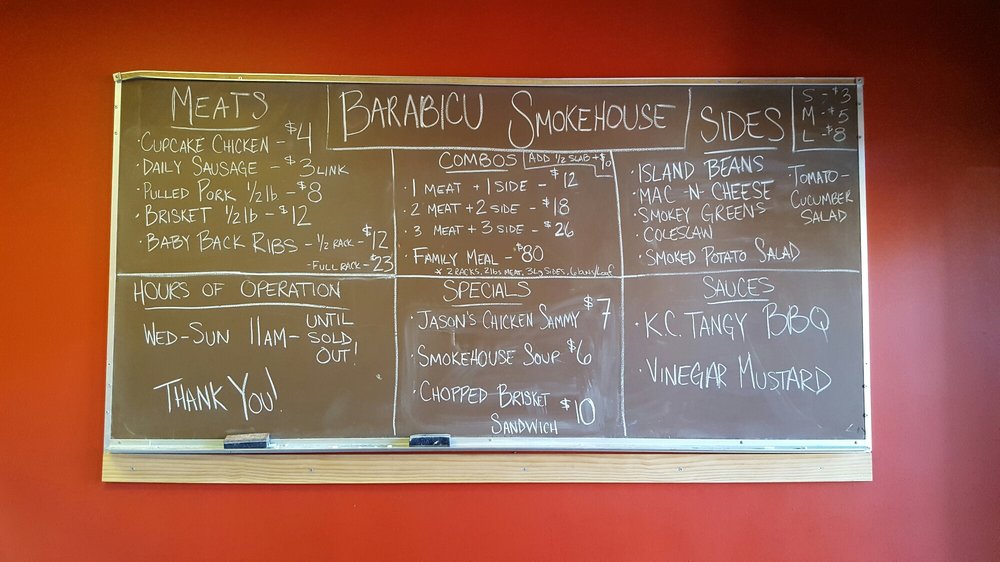 MEATS
CUPCAKE CHICKEN - $4
DAILY SAUSAGE - $3 LINK
PULLED PORK 1/2 lb - $8
BRISKET 1/2 lb - $12
BABY BACK RIBS - 1/2 RACK - $12
- FULL RACK - $23
BARABICU SMOKEHOUSE
COMBOS
ADD 1/2 SLAB +
· 1 MEAT + 1 SIDE - $12
· 2 MEAT + 2 SIDE - $18
· 3 MEAT + 3 SIDE - $26
· FAMILY MEAL - $80
* 2 RACKS, 2 lbs MEAT, 3 Lg SIDES,
SIDES
S - $3
M - $5
L - $8
· ISLAND BEANS
· MAC -N- CHEESE
· SMOKEY GREENS
· COLESLAW
· SMOKED POTATO SALAD
TOMATO -
CUCUMBER
SALAD
HOURS OF OPERATION
WED-SUN 11AM- UNTIL
SOLD
OUT!
THANK YOU!
SPECIALS
· JASON'S CHICKEN SAMMY $7
· SMOKEHOUSE SOUP $6
· CHOPPED BRISKET
SANDWICH $10
SAUCES
· K.C. TANGY BBQ
· VINEGAR MUSTARD